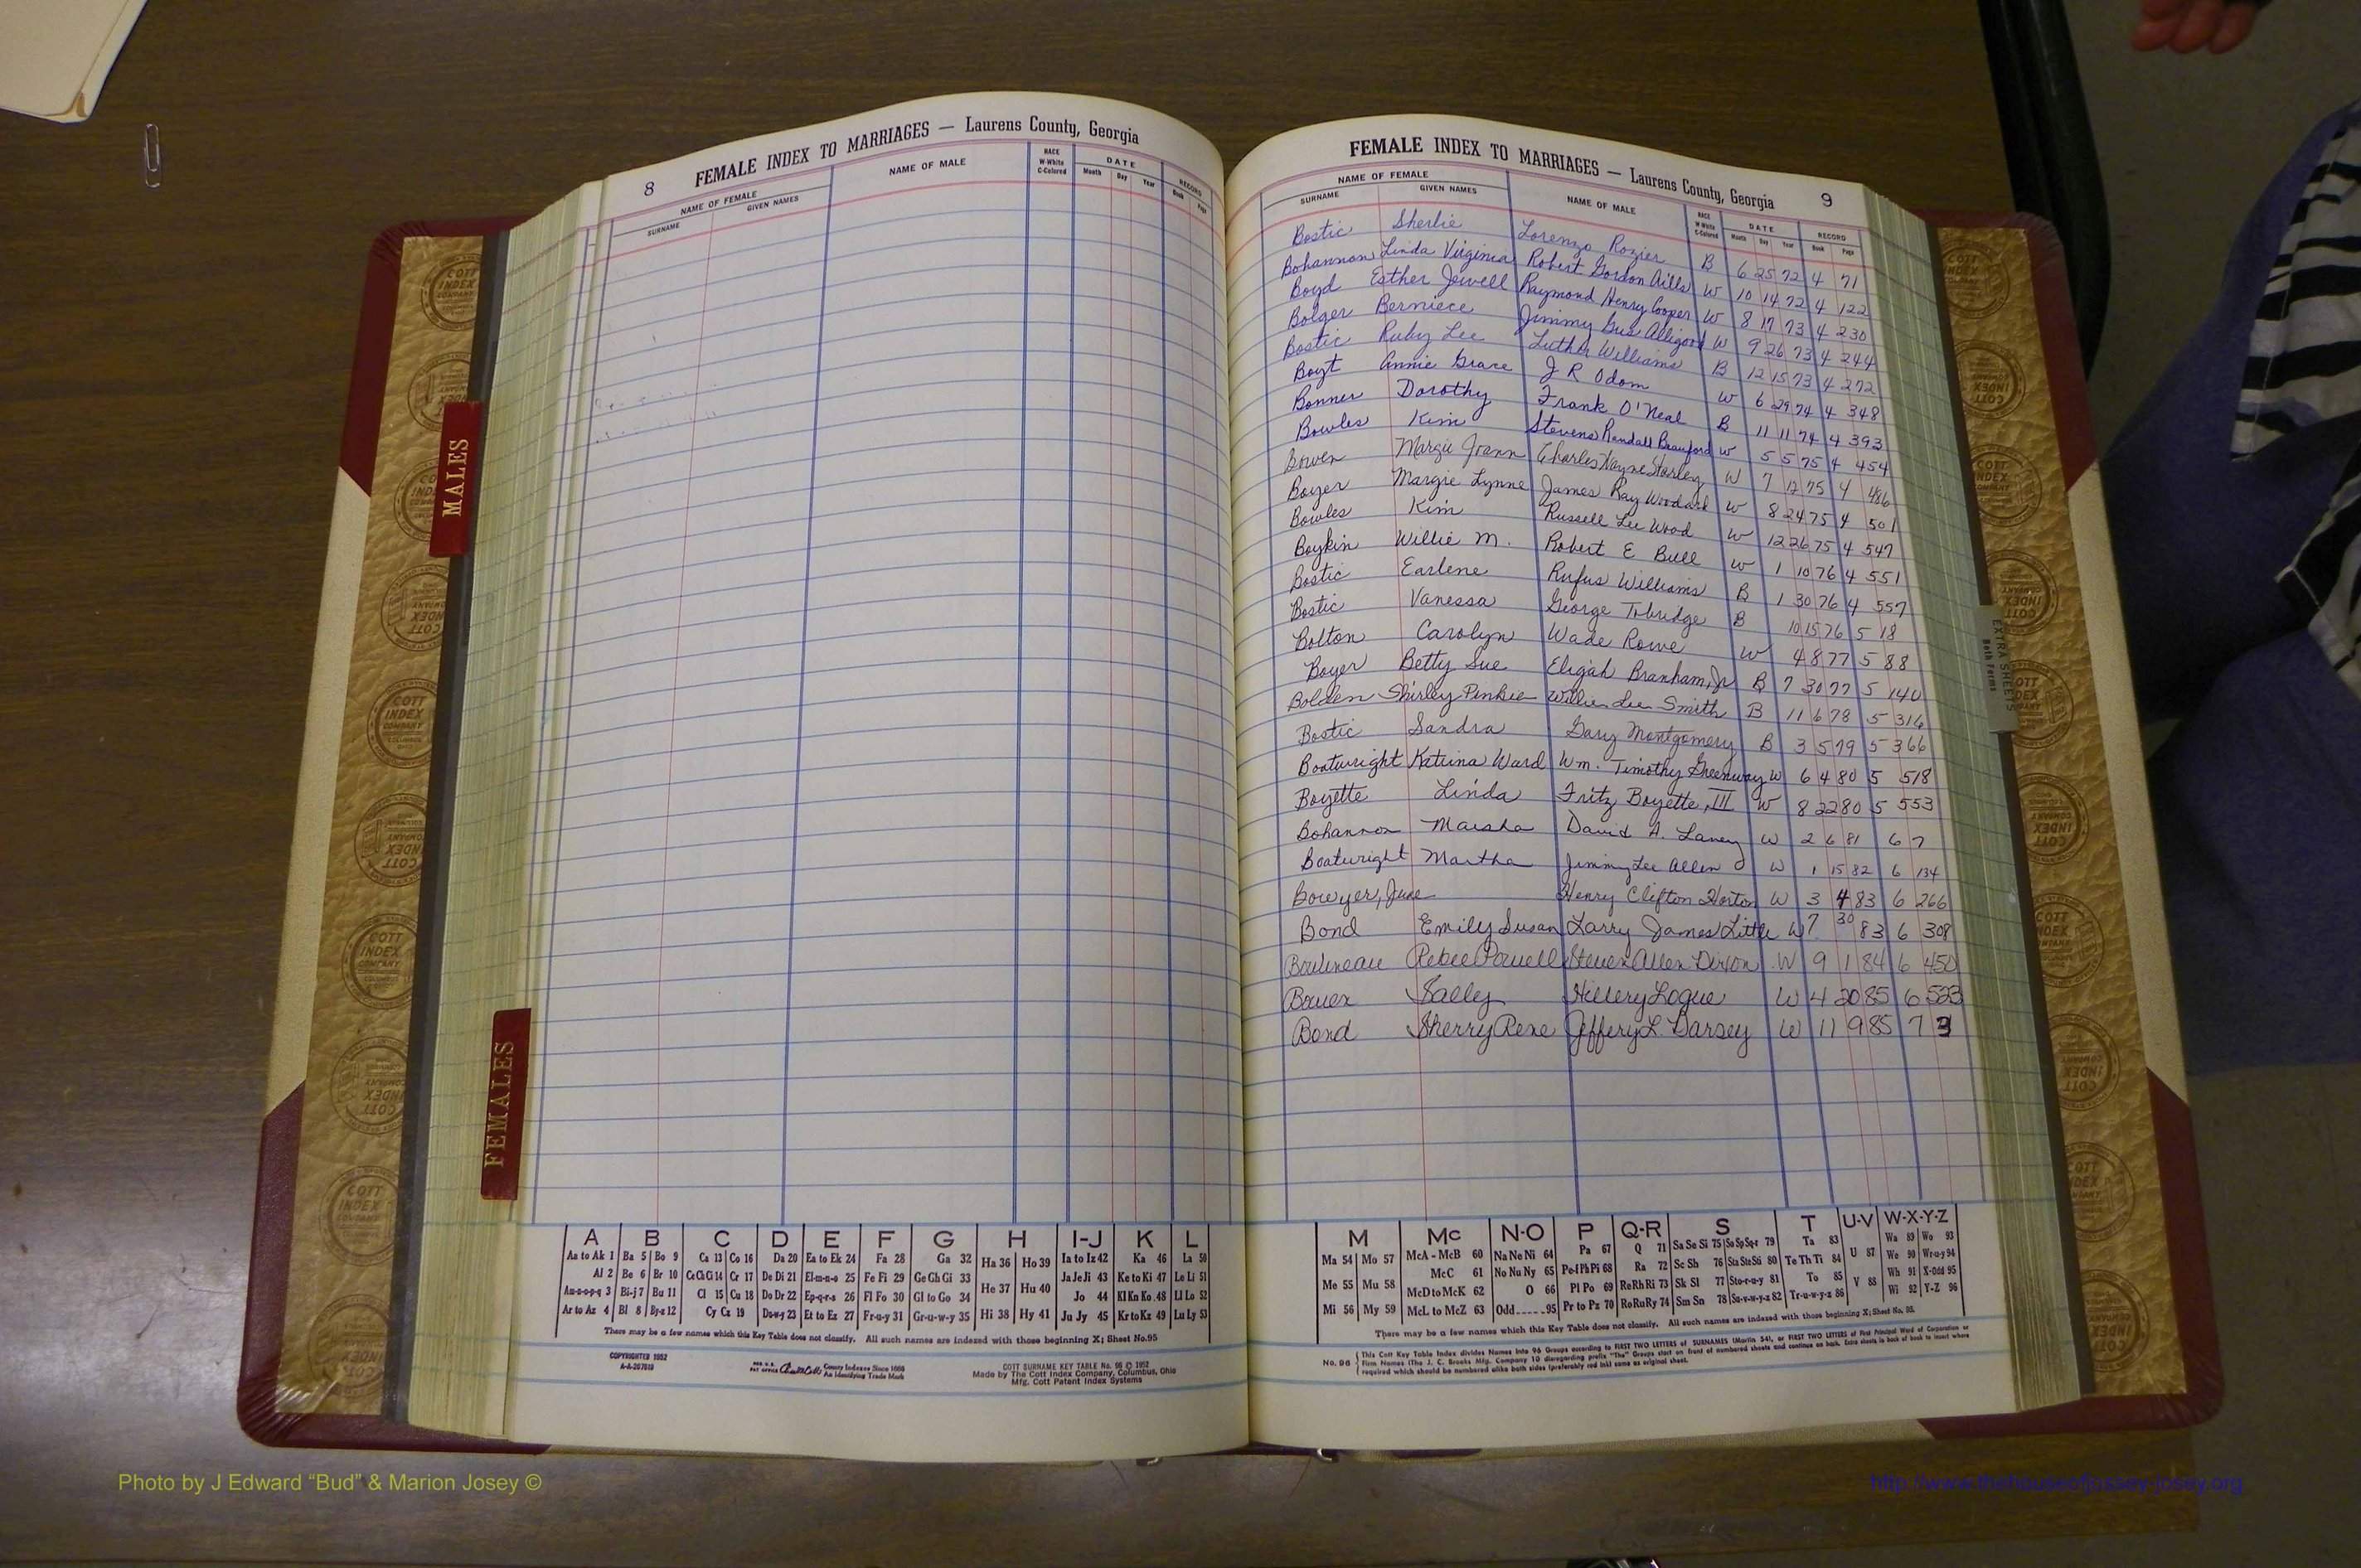 8 FEMALE INDEX TO MARRIAGES — Laurens County, Georgia
NAME OF FEMALE NAME OF MALE RACE W-White C-Colored DATE RECORD
SURNAME GIVEN NAMES Month Day Year Book Page
MALES
FEMALES
FEMALE INDEX TO MARRIAGES — Laurens County, Georgia 9
NAME OF FEMALE NAME OF MALE RACE W-White C-Colored DATE RECORD
SURNAME GIVEN NAMES Month Day Year Book Page
Bostic Sherlie Lorenzo Rozier B 6 25 72 4 71
Bohannon Linda Virginia Robert Gordon W 10 14 72 4 122
Boyd Esther Jewell Raymond Henry Cooper W 8 17 73 4 230
Bolger Berniece Jimmy Gus Alligood W 9 26 73 4 244
Bostic Ruby Lee Luther Williams B 12 15 73 4 272
Boyt Annie Grace J R Odom W 6 29 74 4 348
Bonner Dorothy Frank O'Neal B 11 11 74 4 393
Bowles Kim Stevens Randall W 5 5 75 4 454
Bowen Margie Joann Charles Wayne W 7 12 75 4 486
Boyer Margie Lynne James Ray Woodard W 8 24 75 4 501
Bowles Kim Russell Lee Wood W 12 26 75 4 547
Boykin Willie M. Robert E Bull W 1 10 76 4 551
Bostic Earlene Rufus Williams B 1 30 76 4 557
Bostic Vanessa George B 10 15 76 5 18
Bolton Carolyn Wade Rowe W 4 8 77 5 88
Boyer Betty Sue Eligah Branham, Jr B 7 30 77 5 140
Bolden Shirley Pinkie Willie Lee Smith B 11 6 78 5 316
Bostic Sandra Gary Montgomery B 3 5 79 5 366
Boatwright Katrina Ward Wm. Timothy Greenway W 6 4 80 5 518
Boyette Linda Fritz Boyette, III W 8 22 80 5 553
Bohannon Marsha David A. Laney W 2 6 81 6 7
Boatwright Martha Jimmy Lee Allen W 1 15 82 6 134
Bowyer, June Henry Clifton Horton W 3 4 83 6 266
Bond Emily Susan Larry James Little W 7 30 83 6 308
Powell Steven Allen Dixon W 9 1 84 6 450
Sally Hillery Logue W 4 20 85 6 523
Bond Sherry Rene Jeffery L Darsey W 11 9 85 7 3
EXTRA SHEETS
Both Forms
COTT INDEX COMPANY
A B C D E F G H I-J K L
Aa to Ak 1 Ba 5 Bo 9 Ca 13 Co 16 Da 20 Ea to Ek 24 Fa 28 Ga 32 Ha 36 Ho 39 Ia to Iz 42 Ka 46 La 50
Al 2 Be 6 Br 10 Ce Ch Ci 14 Cr 17 De Di 21 El-m-n-o 25 Fe Fi 29 Ge Gh Gi 33 He 37 Hu 40 Ja Je Ji 43 Ke to Ki 47 Le Li 51
Am-n-o-p-q 3 Bi-j 7 Bu 11 Cl 15 Cu 18 Do Dr 22 Ep-q-r-s 26 Fl Fo 30 Gl to Go 34 Jo 44 Kl Kn Ko 48 Ll Lo 52
Ar to Az 4 Bl 8 By-z 12 Cy Cz 19 Du-w-y 23 Et to Ez 27 Fr-u-y 31 Gr-u-w-y 35 Hi 38 Hy 41 Ju Jy 45 Kr to Kz 49 Lu Ly 53
There may be a few names which this Key Table does not classify. All such names are indexed with those beginning X; Sheet No. 95
COPYRIGHTED 1952
A-A-207619
County Indexes Since 1888
An Identifying Trade Mark
COTT SURNAME KEY TABLE No. 96 © 1952
Made by The Cott Index Company, Columbus, Ohio
Mfg. Cott Patent Index Systems
M Mc N-O P Q-R S T U-V W-X-Y-Z
Ma 54 Mo 57 McA - McB 60 Na Ne Ni 64 Pa 67 Q 71 Sa Se Si 75 So Sp Sq-r 79 Ta 83 U 87 Wa 89 Wo 93
McC 61 No Nu Ny 65 Pe-f Ph Pi 68 Ra 72 Sc Sh 76 Sta Ste Sti 80 Te Th Ti 84 We 90 Wr-u-y 94
Me 55 Mu 58 McD to McK 62 O 66 Pl Po 69 Re Rh Ri 73 Sk Sl 77 Sto-r-u-y 81 To 85 V 88 Wh 91 X-Odd 95
Mi 56 My 59 McL to McZ 63 Odd 95 Pr to Pz 70 Ro Ru Ry 74 Sm Sn 78 Su-v-w-y-z 82 Tr-u-w-y-z 86 Wi 92 Y-Z 96
There may be a few names which this Key Table does not classify. All such names are indexed with those beginning X; Sheet No. 95.
No. 96 This Cott Key Table Index divides Names into 96 Groups according to FIRST TWO LETTERS of SURNAMES (Martin 54), or FIRST TWO LETTERS of First Principal Word of Corporation or
Firm Names (The J. C. Brooks Mfg. Company 10 disregarding prefix "The" Groups start on front of numbered sheets and continue on back. Extra sheets in back of book to insert where
required which should be numbered alike both sides (preferably red ink) same as original sheet.
Photo by J Edward “Bud” & Marion Josey ©
http://www.thehouseofjossey-josey.org